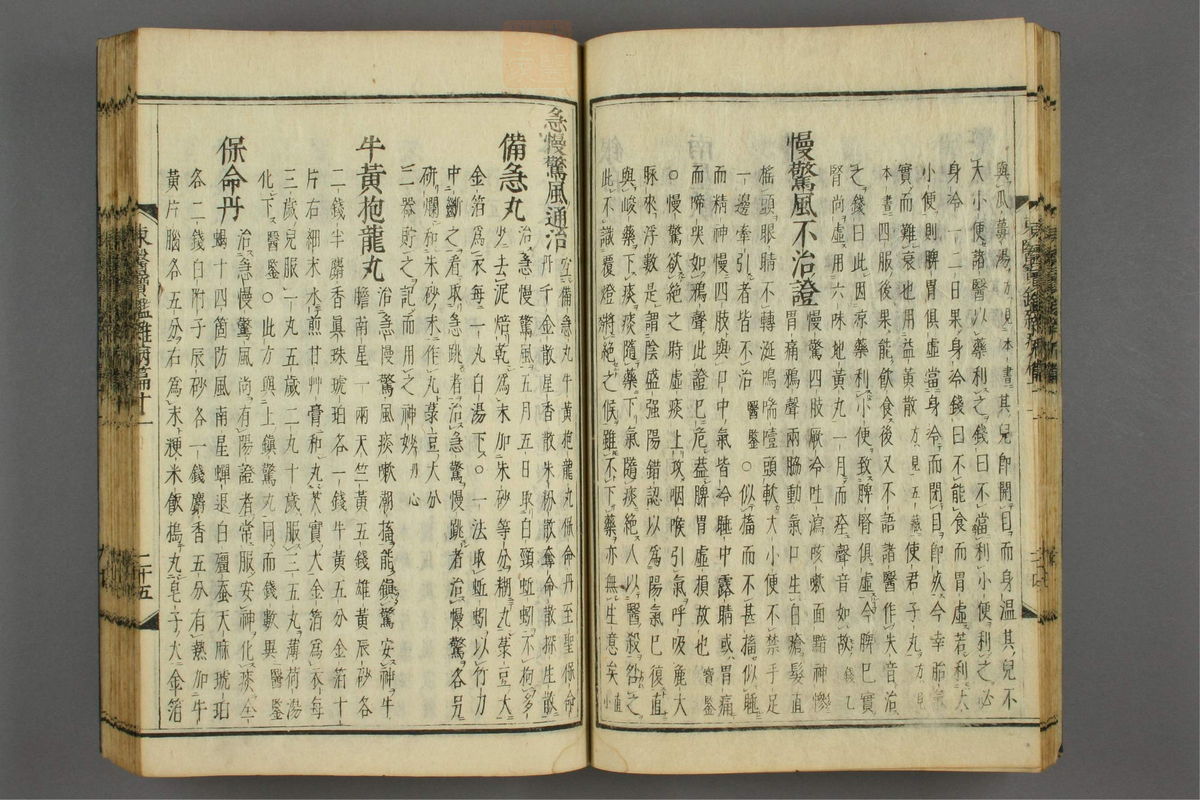 與瓜蔞湯方見本書其兒即開目而身溫其兒不
大小便諸醫以藥利之錢曰不當利小便利之必
身冷一二日果身冷錢曰不能食而胃虛若利大
小便則脾胃俱虛當身冷而閉目即妏今幸胎氣
實而難衰也用益黃散方見五藏使君子丸方見
本書四服後果能飮食後又不語諸醫作失音治
之錢曰此因凉藥利小便致脾腎俱虛今脾已實
腎尚虛用六味地黃丸一月而痊聲音如故錢乙
慢驚風不治證慢驚四肢厥冷吐瀉咳嗽面黯神慘
胃痛鴉聲兩脇動氣口生白瘡髮直
搖頭眼睛不轉涎鳴喘噎頭軟大小便不禁手足
一邊牽引者皆不治醫鑒○似搐而不甚搐似睡
而精神慢四肢與口中氣皆冷睡中露睛或胃痛
而啼哭如鴉聲此證已危蓋脾胃虛損故也寶鑒
○慢驚欲絶之時虛痰上攻咽喉引氣呼吸麁大
脉來浮數是謂陰盛强陽錯認以爲陽氣已復直
與峻藥下痰痰隨藥下氣隨痰絶人以醫殺咎之
此不識覆燈將絶之候雖不下藥亦無生意矣直小
急慢驚風通治宜備急丸牛黃抱龍丸保命丹至聖保命
丹千金散星香散朱粉散奪命散探生散
備急丸治急慢驚風五月五日取白頸蚯蚓不拘多
少去泥焙乾爲末加朱砂等分糊丸菉豆大
金箔爲衣每一丸白湯下○一法取蚯蚓以竹刀
中斷之看取急跳者治急驚慢跳者治慢驚各另
硏爛和朱砂末作丸菉豆大分
二器貯之記而用之神妙丹心
牛黃抱龍丸治急慢驚風痰嗽潮搐能鎭驚安神牛
膽南星一兩天竺黃五錢雄黃辰砂各
二錢半麝香眞珠琥珀各一錢牛黃五分金箔十
片右細末水煎甘艸膏和丸芡實大金箔爲衣每
三歲兒服一丸五歲二丸十歲服三五丸薄荷湯
化下醫鑒○此方與上鎭驚丸同而錢數異醫鑒
保命丹治急慢驚風尚有陽證者常服安神化痰全
蝎十四箇防風南星蟬退白殭蚕天麻琥珀
各二錢白附子辰砂各一錢麝香五分有熱加牛
黃片腦各五分右爲末粳米飮搗丸皂子大金箔
東醫寶鑑雜病篇十一
二十五